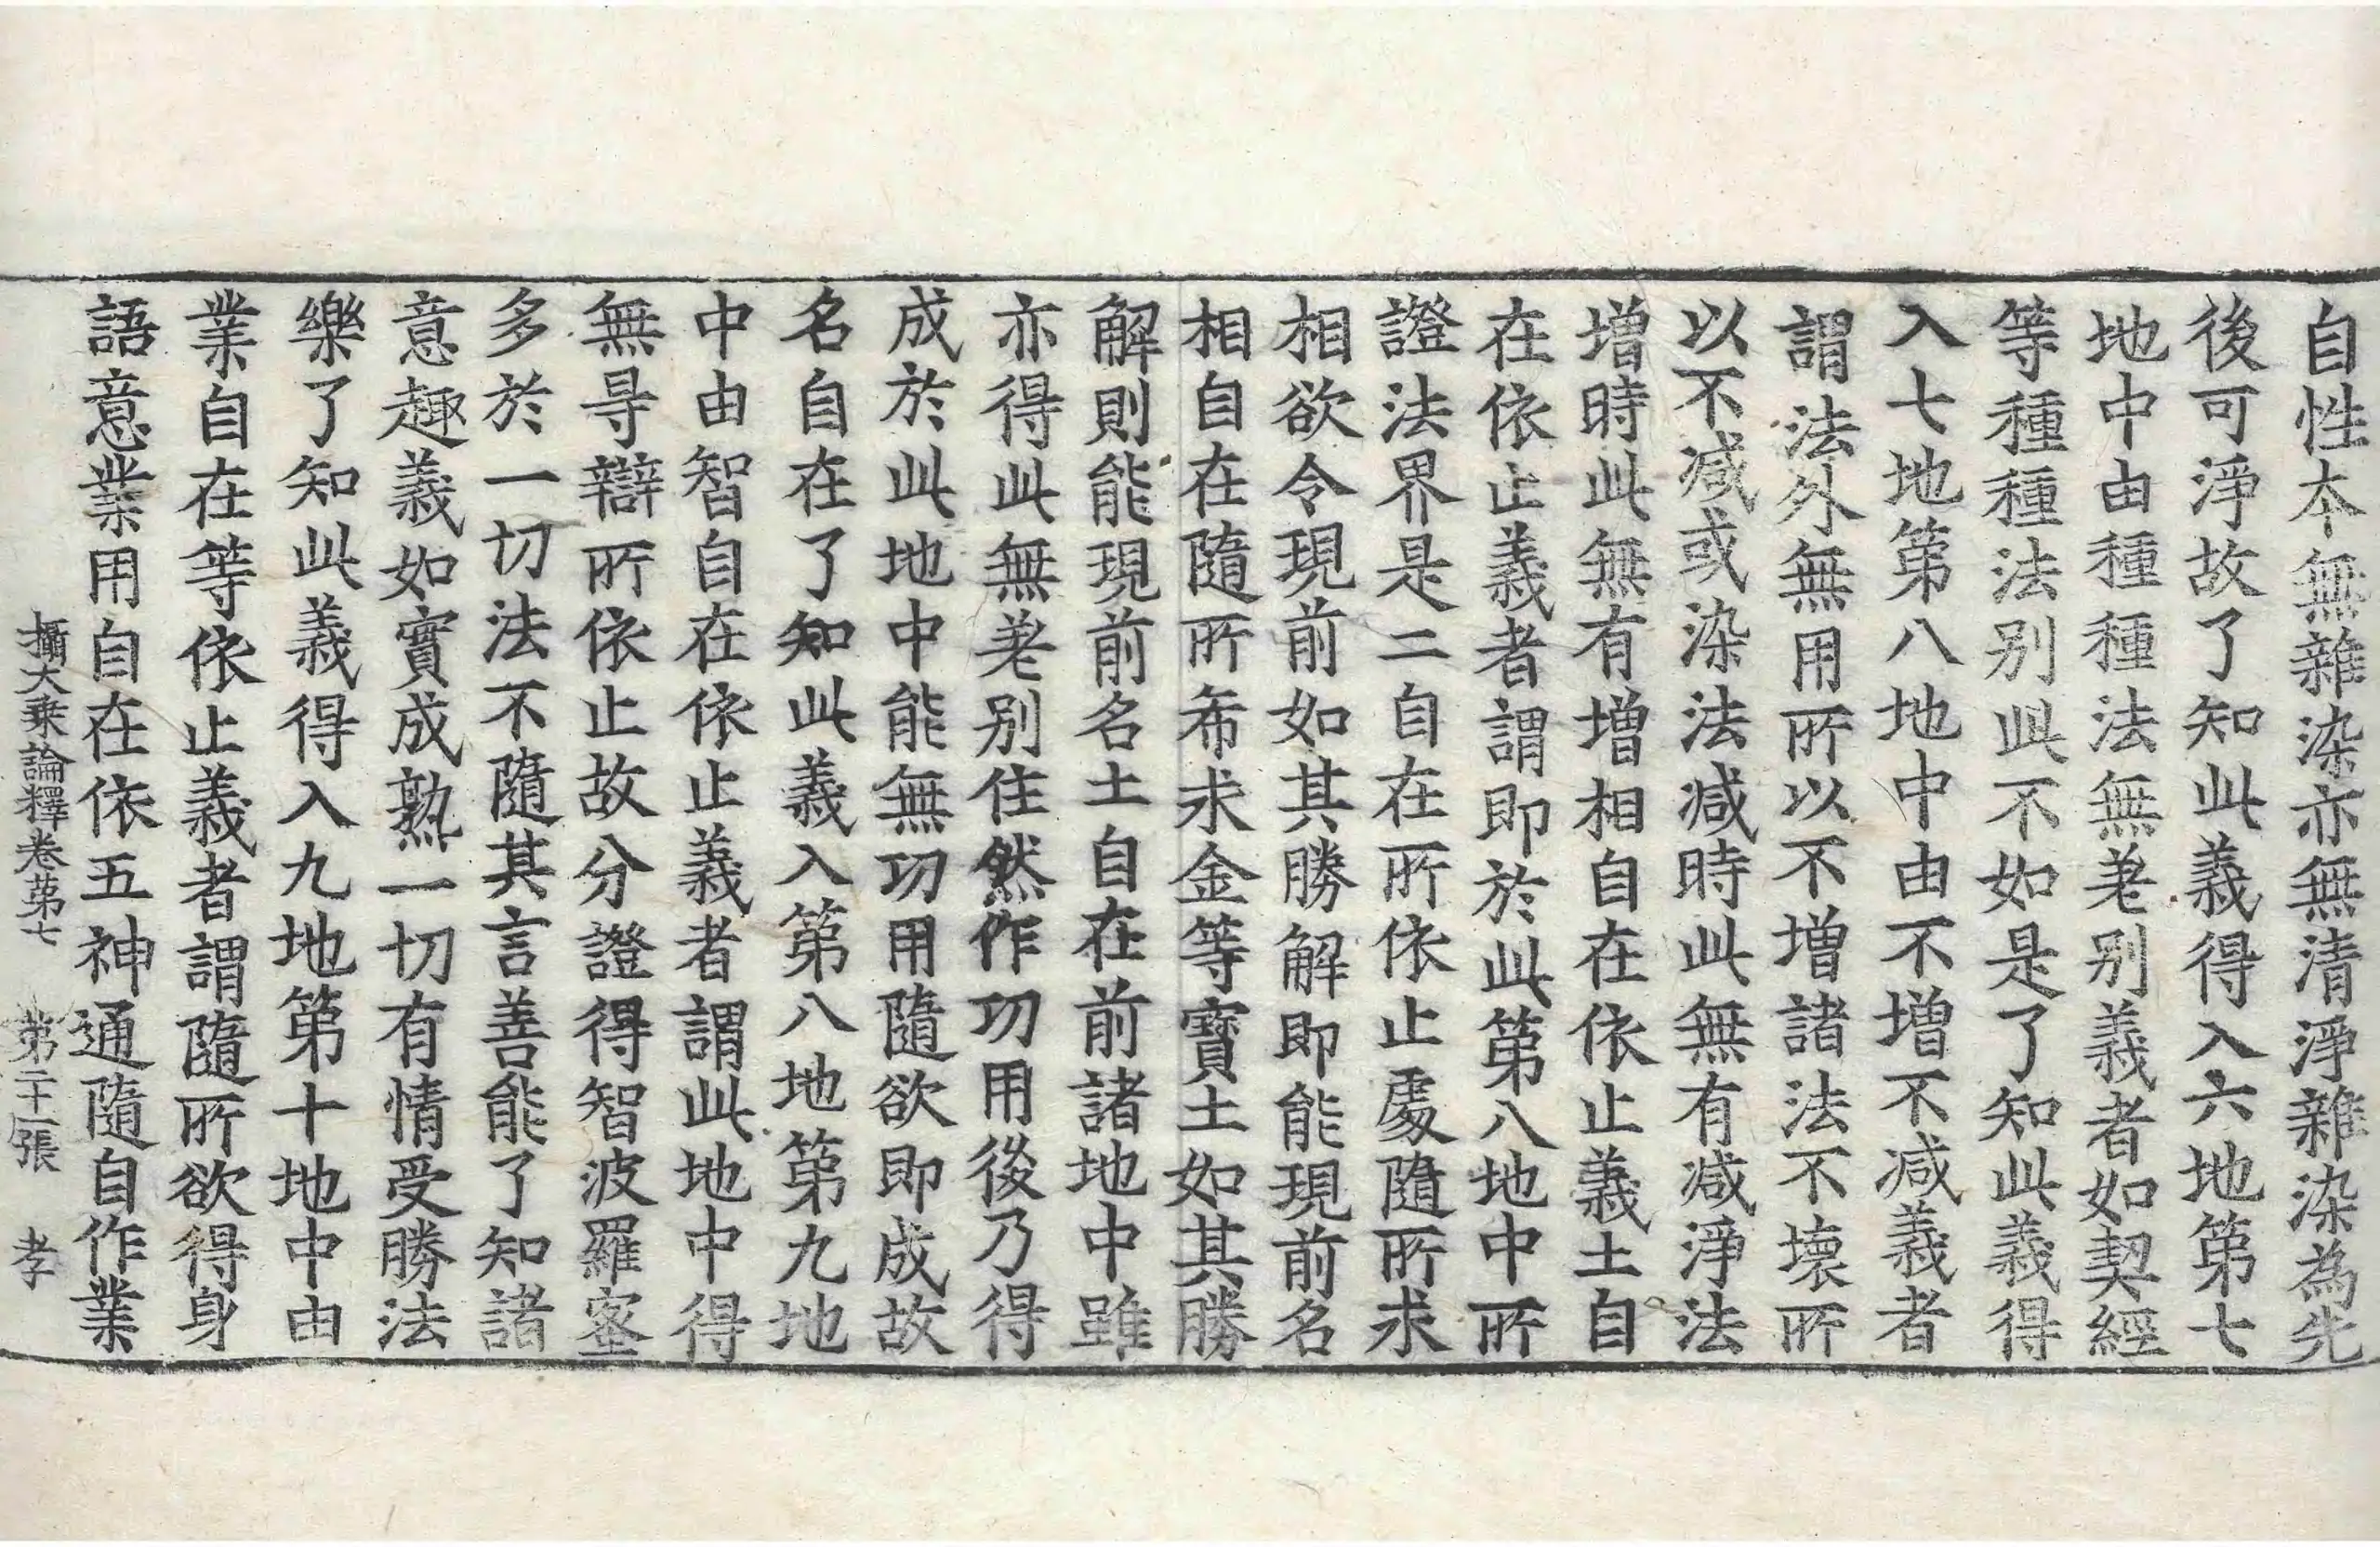 自性本無雜染亦無清淨雜染為先
後可淨故了知此義得入六地第七
地中由種種法無差別義者如契經
等種種法別此不如是了知此義得
入七地第八地中由不增不減義者
謂法外無用所以不增諸法不壞所
以不減或染法減時此無有減淨法
增時此無有增相自在依止義土自
在依止義者謂即於此第八地中所
證法界是二自在所依止處隨所求
相欲令現前如其勝解即能現前名
相自在隨所希求金等寶土如其勝
解則能現前名土自在前諸地中雖
亦得此無差別住然作功用後乃得
成於此地中能無功用隨欲即成故
名自在了知此義入第八地第九地
中由智自在依止義者謂此地中得
無㝵辯所依止故分證得智波羅蜜
多於一切法不隨其言善能了知諸
意趣義如實成熟一切有情受勝法
樂了知此義得入九地第十地中由
業自在等依止義者謂隨所欲得身
語意業用自在依五神通隨自作業
攝大乘論釋卷第七 第二十一張 孝